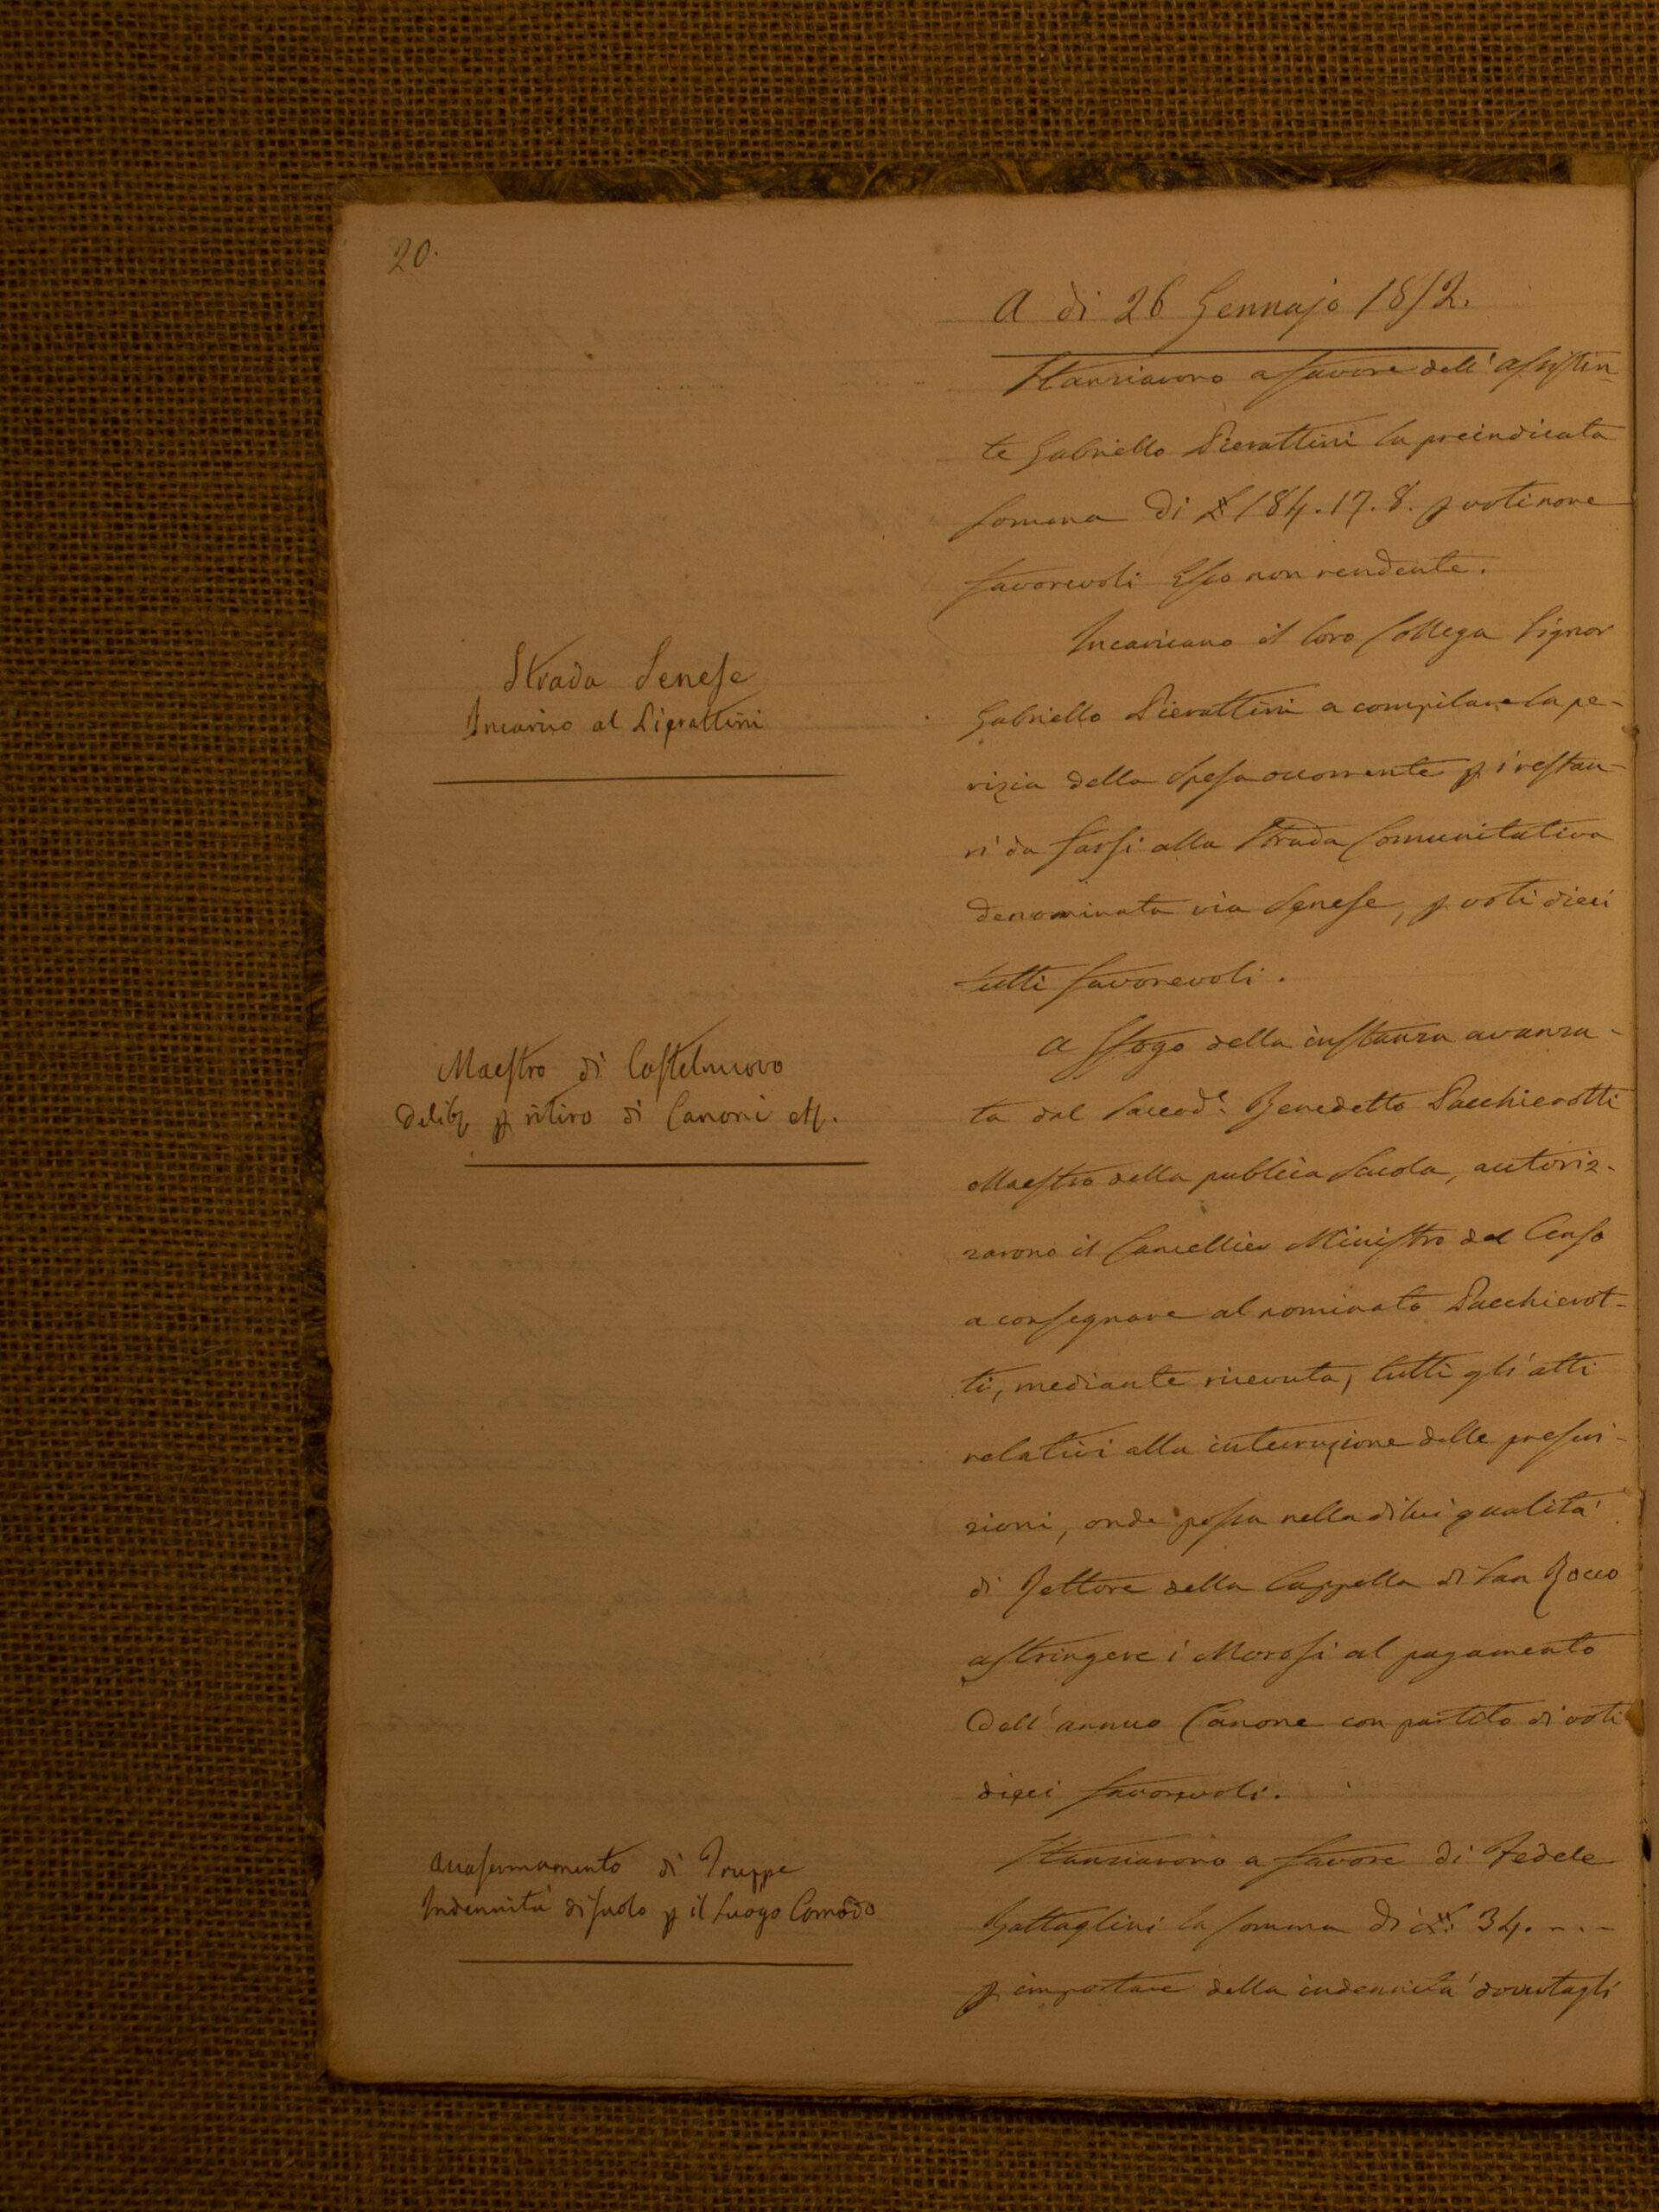 20.
A di 26 Gennajo 1852.
Stanziarono a favore dell'assisten
te Gabriello Pierattini la preindicata
somma di £ 184.17.8. p voti nove
favorevoli Esso non rendente.
Strada Senese
Incarico al Pierattini
Incaricano il loro Collega Signor
Gabriello Pierattini a compilare la pe-
rizia della spesa occorrente p i restau-
ri da farsi alla Strada Comunitativa
denominata via Senese, p voti dieci
tutti favorevoli.
Maestro di Castelnuovo
Delibe p ritiro di Canoni
A sfogo della instanza avanza-
ta dal Sacerde Benedetto Pacchierotti
Maestro della publica Scuola, autoriz-
zarono il Cancellier Ministro del Censo
a consegnare al nominato Pacchierot-
ti, mediante ricevuta, tutti gli atti
relativi alla interruzione delle prescri-
zioni, onde possa nella di lui qualità
di Rettore della Cappella di San Rocco
astringere i Morosi al pagamento
dell'annuo Canone con partito di voti
dieci favorevoli.
Accasermamento di Truppe
Indennità di suolo p il Luogo Comodo
Stanziarono a favore di Fedele
Battaglini la somma di £ 34. - - -
p importare della indennità dovutagli